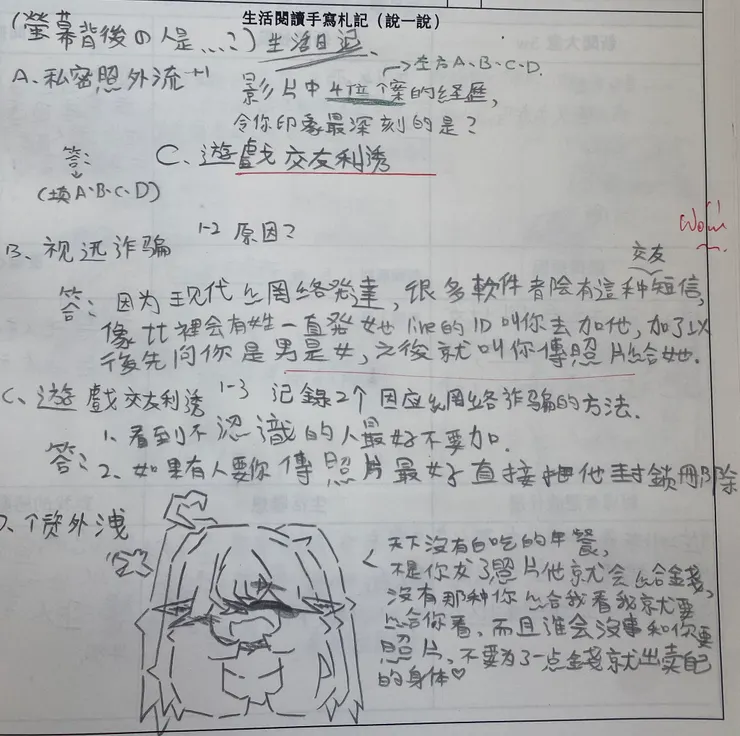 生活閱讀手寫札記（說一說）
(螢幕背後の人是....?) 生活日記
A、私密照外流 +1
→坐方A、B、C、D.
影片中4位個案的经歷,
令你印象最深刻的是?
答: C、遊戲交友利誘
(填A、B、C、D)
Wow!
B、视迅诈骗 1-2 原因?
交友
答: 因为现代网絡発達, 很多軟件都会有這种短信,
像比裡会有姓一直発她 line的ID 叫你去加他, 加了以
後先问你是男是女, 之後就叫你傳照片给她.
C、遊戲交友利诱 1-3 记錄2个因应网絡诈骗的方法.
答: 1. 看到不認識的人最好不要加.
2. 如果有人要你傳照片最好直接把他封鎖刪除
D、个资外洩
天下沒有白吃的早餐,
不是你发了照片他就会给金錢,
沒有那种你给我看我就要
给你看, 而且谁会沒事和你要
照片, 不要为了一点金錢就出卖自己
的身体♡